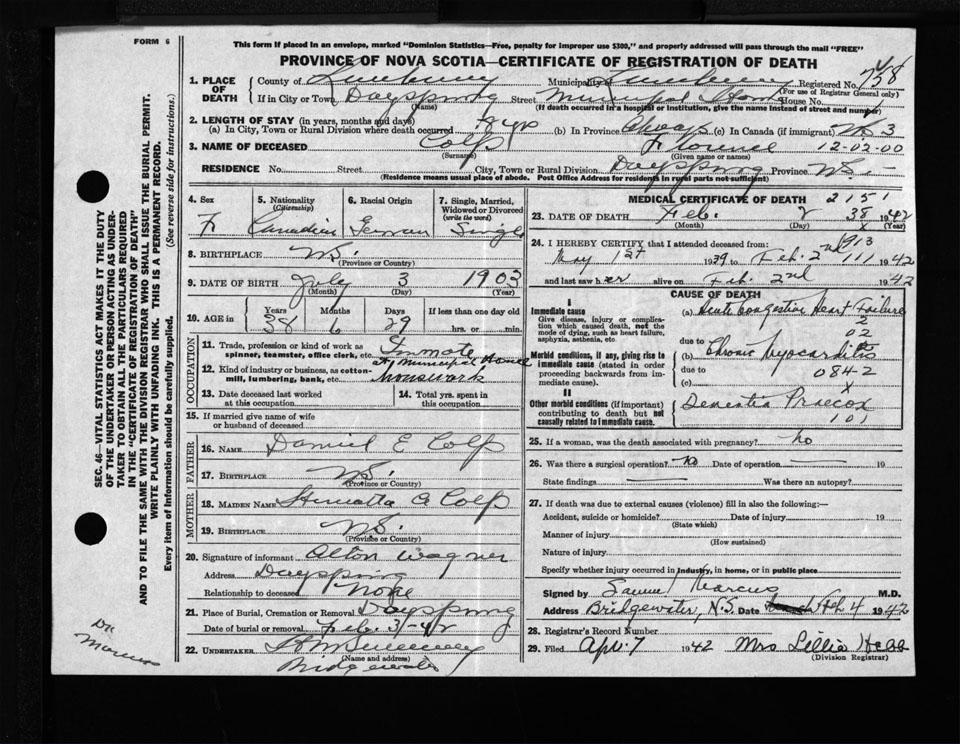 FORM 6
This form if placed in an envelope, marked "Dominion Statistics—Free, penalty for improper use $300," and properly addressed will pass through the mail "FREE"
PROVINCE OF NOVA SCOTIA—CERTIFICATE OF REGISTRATION OF DEATH
1. PLACE OF DEATH County of Lunenburg Municipality Lunenburg Registered No. 758
(For use of Registrar General only)
If in City or Town Dayspring Street Municipal Home House No.
(Name) (If death occurred in a hospital or institution, give the name instead of street and number)
2. LENGTH OF STAY (in years, months and days)
(a) In City, Town or Rural Division where death occurred 8 yrs (b) In Province Always (c) In Canada (if immigrant) 3
3. NAME OF DECEASED Colp Florence 12-02-00
(Surname) (Given name or names)
RESIDENCE No. Street City, Town or Rural Division Dayspring Province N.S.
(Residence means usual place of abode. Post Office Address for residents in rural parts not sufficient)
4. Sex 5. Nationality (Citizenship) 6. Racial Origin 7. Single, Married, Widowed or Divorced (write the word)
F Canadian German Single
8. BIRTHPLACE N.S.
(Province or Country)
9. DATE OF BIRTH July 3 1903
(Month) (Day) (Year)
10. AGE in Years Months Days If less than one day old
38 6 29 hrs. or min.
OCCUPATION
11. Trade, profession or kind of work as spinner, teamster, office clerk, etc. Inmate
of Municipal Home
12. Kind of industry or business, as cotton-mill, lumbering, bank, etc. housework
13. Date deceased last worked at this occupation 14. Total yrs. spent in this occupation.
15. If married give name of wife or husband of deceased
FATHER
16. NAME Daniel E Colp
17. BIRTHPLACE N.S.
(Province or Country)
MOTHER
18. MAIDEN NAME Henrietta A Colp
19. BIRTHPLACE N.S.
(Province or Country)
20. Signature of informant Alton Wagner
Address Dayspring
Relationship to deceased None
21. Place of Burial, Cremation or Removal Dayspring
Date of burial or removal Feb. 3/-42
22. UNDERTAKER
(Name and address)
Bridgewater
MEDICAL CERTIFICATE OF DEATH 2151
23. DATE OF DEATH Feb. 2 38 1942
(Month) (Day) x (Year)
24. I HEREBY CERTIFY that I attended deceased from: 1913
May 1st 1939 to Feb. 2nd 111 1942
and last saw her alive on Feb. 2nd 1942
CAUSE OF DEATH
I
Immediate cause
Give disease, injury or complication which caused death, not the mode of dying, such as heart failure, asphyxia, asthenia, etc.
(a) Acute Congestive Heart Failure
2
02
due to
Morbid conditions, if any, giving rise to immediate cause (stated in order proceeding backwards from immediate cause).
(b) Chronic Myocarditis
due to 0842
(c) x
II
Other morbid conditions (if important) contributing to death but not causally related to immediate cause.
Dementia Praecox
101
25. If a woman, was the death associated with pregnancy? no
26. Was there a surgical operation? no Date of operation 19
State findings Was there an autopsy?
27. If death was due to external causes (violence) fill in also the following:—
Accident, suicide or homicide? Date of injury 19
(State which)
Manner of injury
(How sustained)
Nature of injury
Specify whether injury occurred in industry, in home, or in public place
Signed by Marcus M.D.
Address Bridgewater, N.S. Date Feb 4 1942
28. Registrar's Record Number
29. Filed Apr. 7 1942 Mrs Lillie Hebb
(Division Registrar)
SEC. 46—VITAL STATISTICS ACT MAKES IT THE DUTY
OF THE UNDERTAKER OR PERSON ACTING AS UNDER-
TAKER TO OBTAIN ALL THE PARTICULARS REQUIRED
IN THE "CERTIFICATE OF REGISTRATION OF DEATH"
AND TO FILE THE SAME WITH THE DIVISION REGISTRAR WHO SHALL ISSUE THE BURIAL PERMIT.
WRITE PLAINLY WITH UNFADING INK. THIS IS A PERMANENT RECORD.
Every item of Information should be carefully supplied. (See reverse side for instructions.)
Dr
Marcus